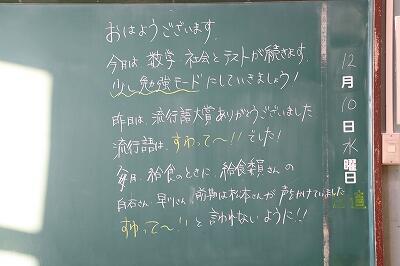 おはようございます。
今日は 数学 社会とテストが続きます。
少し勉強モードにしていきましょう!
昨日は 流行語大賞ありがとうございました
流行語は、すわって〜!! でした!
毎月、給食のときに、給食委員さんの
白石さん 早川さん 前期は松本さんが 声をかけていました
すわって〜!! と言われないように!!
12月10日 水曜日